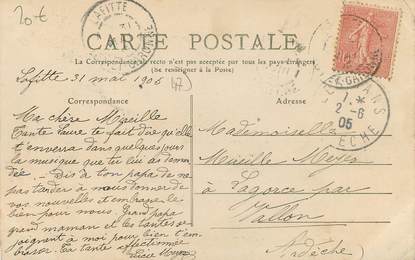 20 €
LAFITTE
CARTE POSTALE
La Correspondance au recto n'est pas acceptée par tous les pays étrangers
(Se renseigner à la Poste)
Lafitte 31 mai 1905
(47)
Correspondance
Adresse
Ma chère Mireille
Tante Laure te fait dire qu'elle
t'enverra dans quelques jours
la musique que tu lui as deman
dée. Dis à ton papa de ne
pas tarder à nous donner de
vos nouvelles et embrasse le
bien pour nous. Grand papa
grand maman et les tantes se
joignent à moi pour bien t'em
brasser. Ta tante affectionnée
Lucie Meyer
Mademoiselle
Mireille Meyer
à Lagorce par
Vallon
Ardèche
2 -6
05